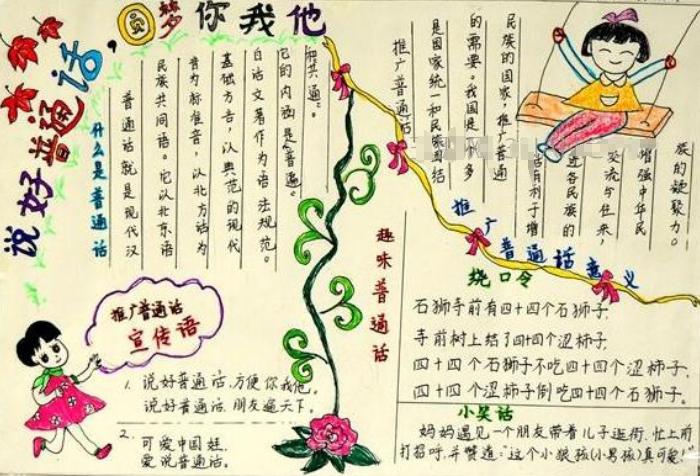 说好普通话,圆梦你我他
什么是普通话
普通话就是现代汉
民族共同语。它以北京语
音为标准音，以北方话为
基础方言，以典范的现代
白话文著作为语法规范。
它的内涵是普遍。
和共通。
推广普通话
是国家统一和民族团结
的需要。我国是 多
民族的国家，推广普通
有利于增
进各民族的
交流与往来，
增强中华民
族的凝聚力。
推广普通话意义
推广普通话
宣传语
1、说好普通话，方便你我他。
说好普通话，朋友遍天下。
2、可爱中国娃，
爱说普通话。
趣味普通话
绕口令
石狮寺前有四十四个石狮子，
寺前树上结了四十四个涩柿子，
四十四个石狮子不吃四十四个涩柿子，
四十四个涩柿子倒吃四十四个石狮子。
小笑话
妈妈遇见一个朋友带着儿子逛街，忙上前
打招呼，并赞道：“这个小狼孩（小男孩）真可爱！”